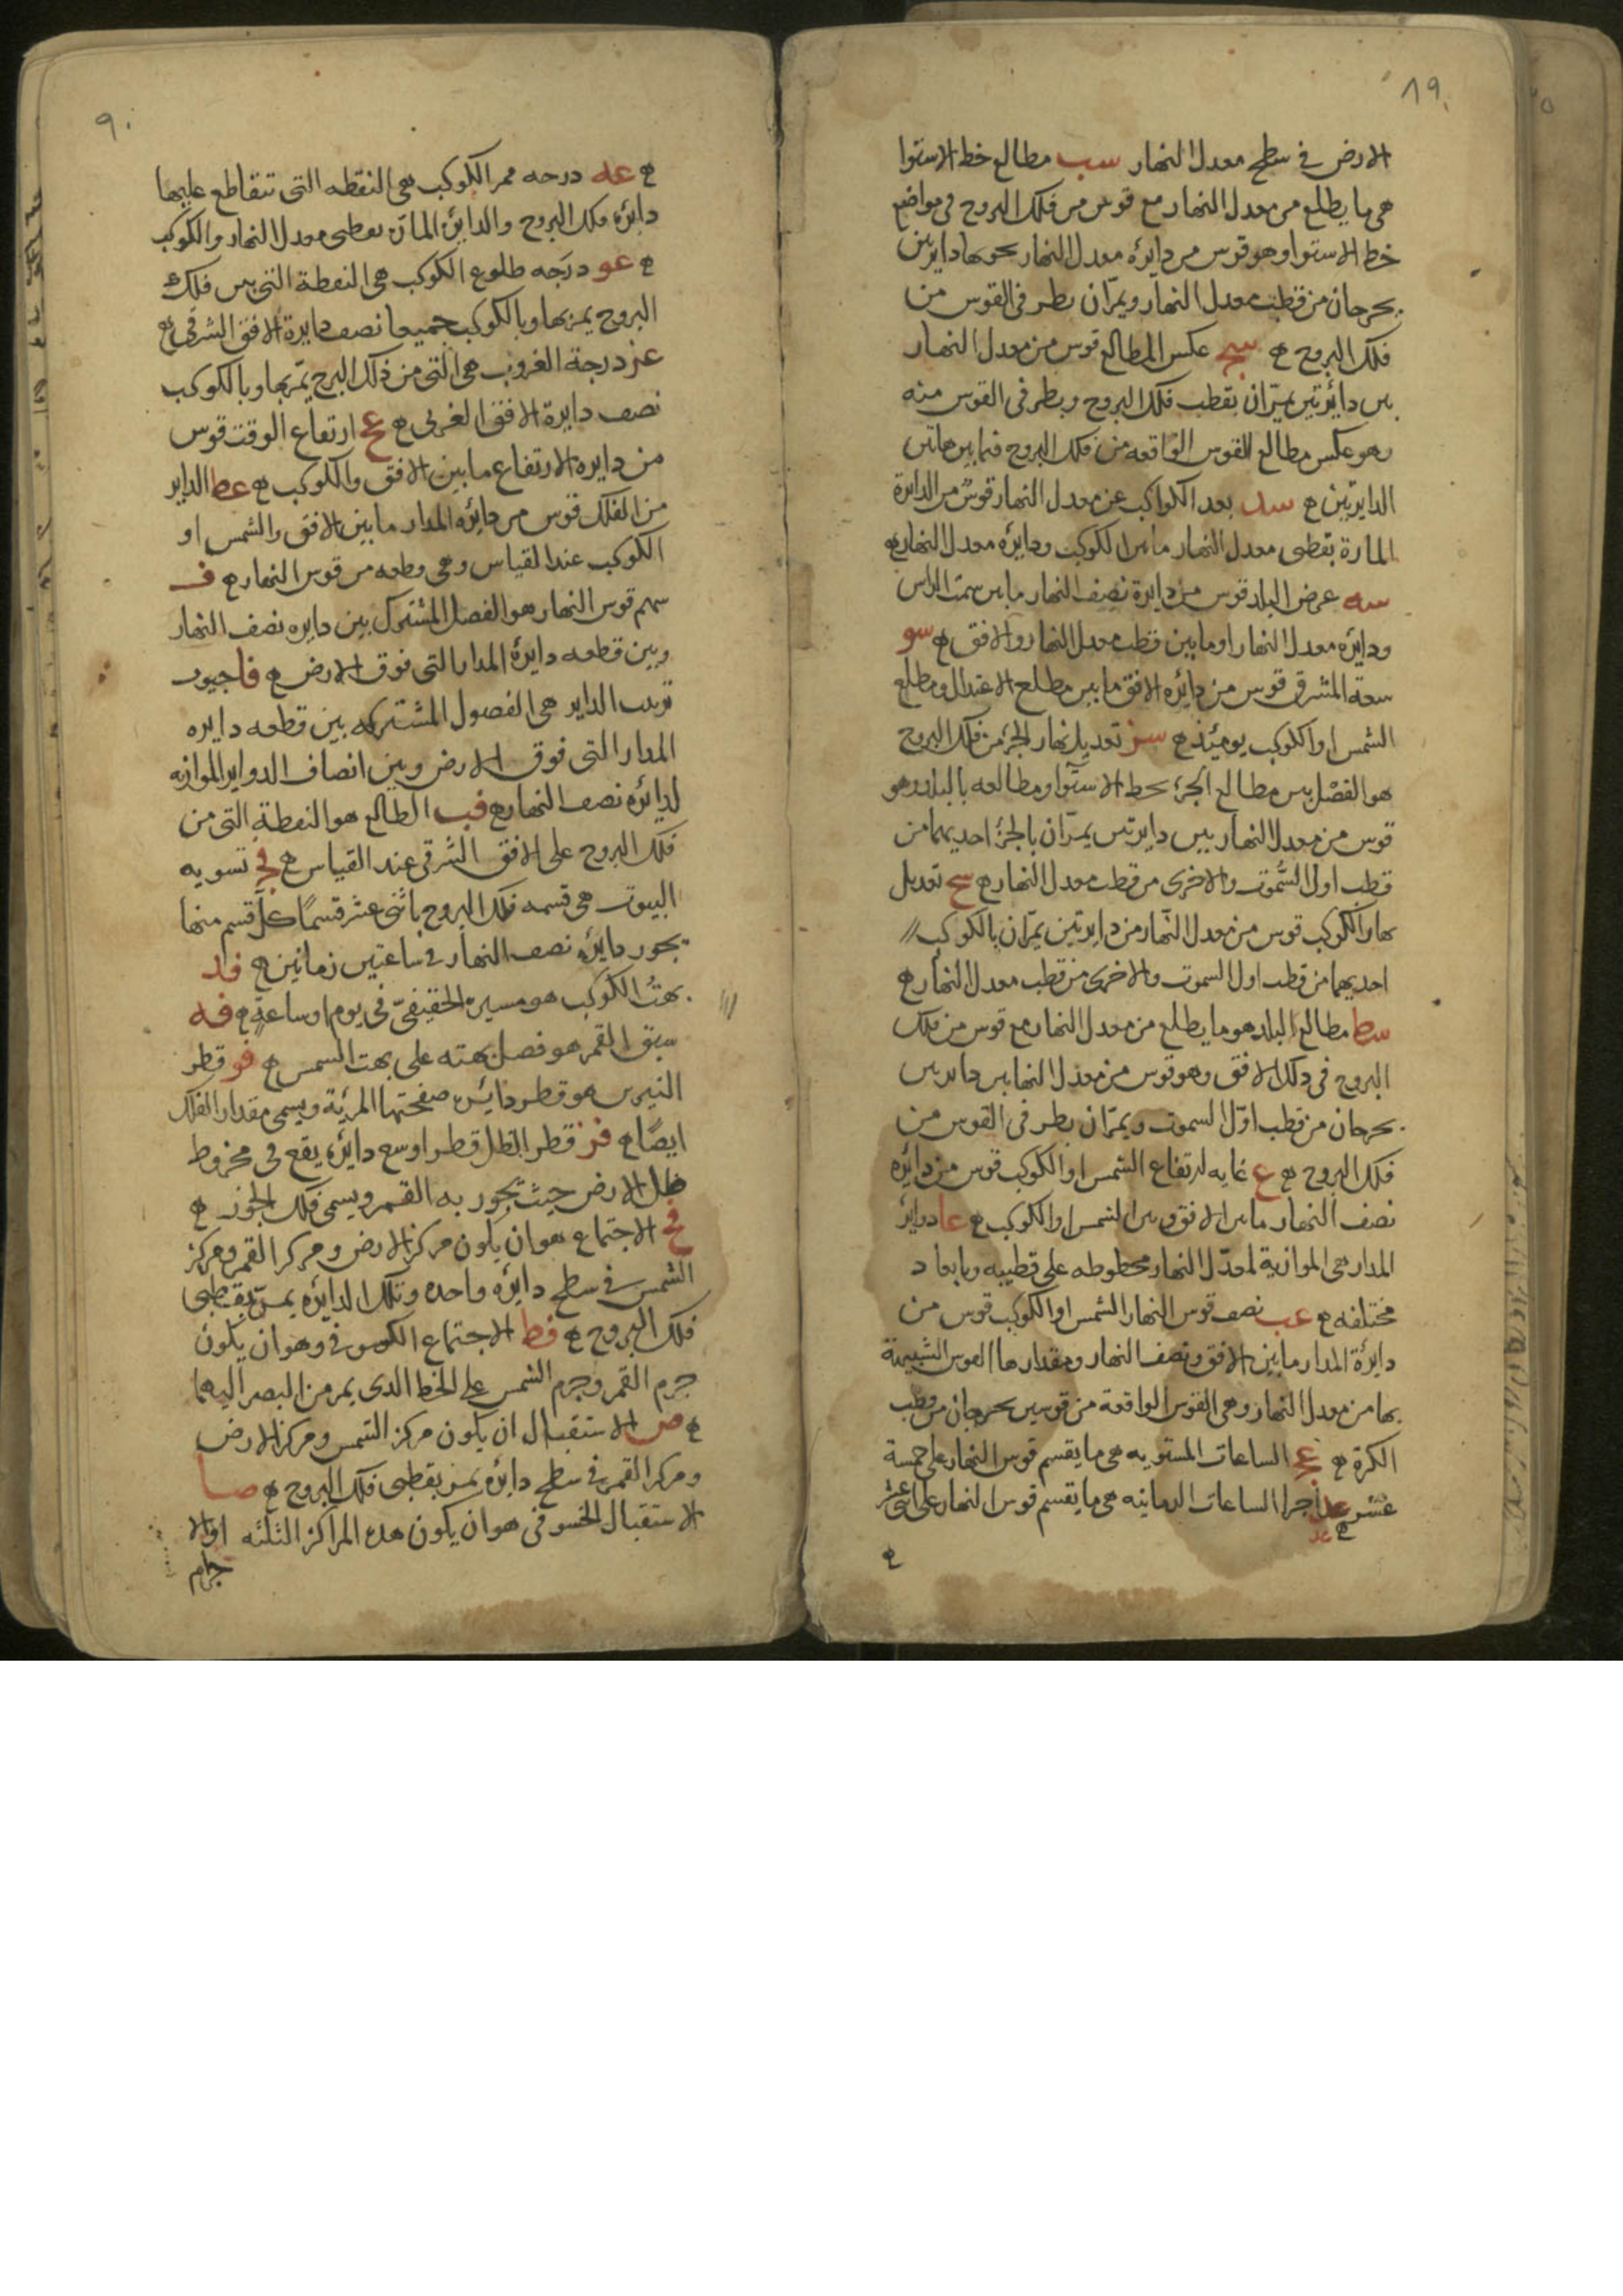 ٨٩
الارض في سطح معدل النهار سب مطالع خط الاستوا
هي ما يطلع من معدل النهار مع قوس من فلك البروج في مواضع
خط الاستوا وهو قوس من دايرة معدل النهار يحوها دايرتين
يخرجان من قطب معدل النهار ويمران بطرفي القوس من
فلك البروج ه سج عكس المطالع قوس من معدل النهار
بين دائرتين يمران بقطب فلك البروج وبطرفي القوس منه
وهو عكس مطالع القوس الواقعه من فلك البروج فيما بين هاتين
الدايرتين ه سد بعد الكواكب عن معدل النهار قوس من الدايرة
المارة بقطبي معدل النهار ما بين الكوكب ودايره معدل النهار ه
سه عرض البلد قوس من دايرة نصف النهار ما بين سمت الراس
ودايره معدل النهار او ما بين قطب معدل النهار والافق ه سو
سعة المشرق قوس من دايره الافق ما بين مطلع الاعتدال ومطلع
الشمس او الكوكب يومئذ ه سز تعديل نهار الجزء من فلك البروج
هو الفضل بين مطالع الجزء بخط الاستوا ومطالعه بالبلد وهو
قوس من معدل النهار بين دايرتين يمران بالجزء احديهما من
قطب اول السموت والاخرى من قطب معدل النهار ه سح تعديل
نهار الكوكب قوس من معدل النهار من دايرتين يمران بالكوكب
احديهما من قطب اول السموت والاخرى من قطب معدل النهار ه
سط مطالع البلد هو ما يطلع من معدل النهار مع قوس من فلك
البروج في ذلك الافق وهو قوس من معدل النهار بين دايرتين
يخرجان من قطب اول السموت ويمران بطرفي القوس من
فلك البروج ه ع غايه ارتفاع الشمس او الكوكب قوس من دايره
نصف النهار ما بين الافق وبين الشمس او الكوكب ه عا دواير
المدار هي الموازية لمعدل النهار مخطوطه على قطبيه وبابعاد
مختلفه ه عب نصف قوس النهار الشمس او الكوكب قوس من
دايرة المدار ما بين الافق ونصف النهار ومقدارها القوس الشبيهة
بها من معدل النهار وهي القوس الواقعة من قوسين يخرجان من قطب
الكرة ه عج الساعات المستويه هي ما يقسم قوس النهار على خمسة
عشر ه عد اجزا الساعات الزمانيه هي ما يقسم قوس النهار على اثنى عشر
ه
٩٠
ه عه درجه ممر الكوكب هي النقطه التي تتقاطع عليها
دايره فلك البروج والدايره المارة بقطبي معدل النهار والكوكب
ه عو درجه طلوع الكوكب هي النقطة التي من فلك
البروج يمر بها وبالكوكب جميعا نصف دايرة الافق الشرقي ه
عز درجة الغروب هي التي من فلك البرج يمر بها وبالكوكب
نصف دايرة الافق الغربي ه عح ارتفاع الوقت قوس
من دايره الارتفاع ما بين الافق والكوكب ه عط الداير
من الفلك قوس من دايره المدار ما بين الافق والشمس او
الكوكب عند القياس وهي قطعه من قوس النهار ه ف
سهم قوس النهار هو الفصل المشترك بين دايره نصف النهار
وبين قطعه دايرة المدار التي فوق الارض ه فا جيوب
ترتيب الداير هي الفصول المشتركه بين قطعه دايره
المدار التي فوق الارض وبين انصاف الدواير الموازيه
لدايره نصف النهار ه فب الطالع هو النقطة التي من
فلك البروج على الافق الشرقي عند القياس ه فج تسويه
البيوت هي قسمه فلك البروج باثنى عشر قسما كل قسم منها
يجوز دايره نصف النهار في ساعتين زمانيتين ه فد
بهت الكوكب هو مسيره الحقيقي في يوم او ساعة ه فه
سبق القمر هو فضل بهته على بهت الشمس ه فو قطر
النيرين هو قطر دايره صفحتها المرئية ويسمى مقدار الفلك
ايضا ه فز قطر الظل قطر اوسع دايره يقع في مخروط
ظل الارض حيث يجوز به القمر ويسمى فلك الجوزهر ه
فح الاجتماع هو ان يكون مركز الارض ومركز القمر ومركز
الشمس في سطح دايره واحده وتلك الدايره يمر بقطبي
فلك البروج ه فط الاجتماع الكسوفي وهو ان يكون
جرم القمر وجرم الشمس على الخط الذي يمر من البصر اليهما
ه ص الاستقبال ان يكون مركز الشمس ومركز الارض
ومركز القمر في سطح دايره يمر بقطبي فلك البروج ه صا
الاستقبال الخسوفي هو ان يكون هذه المراكز الثلثه او الا
جرام